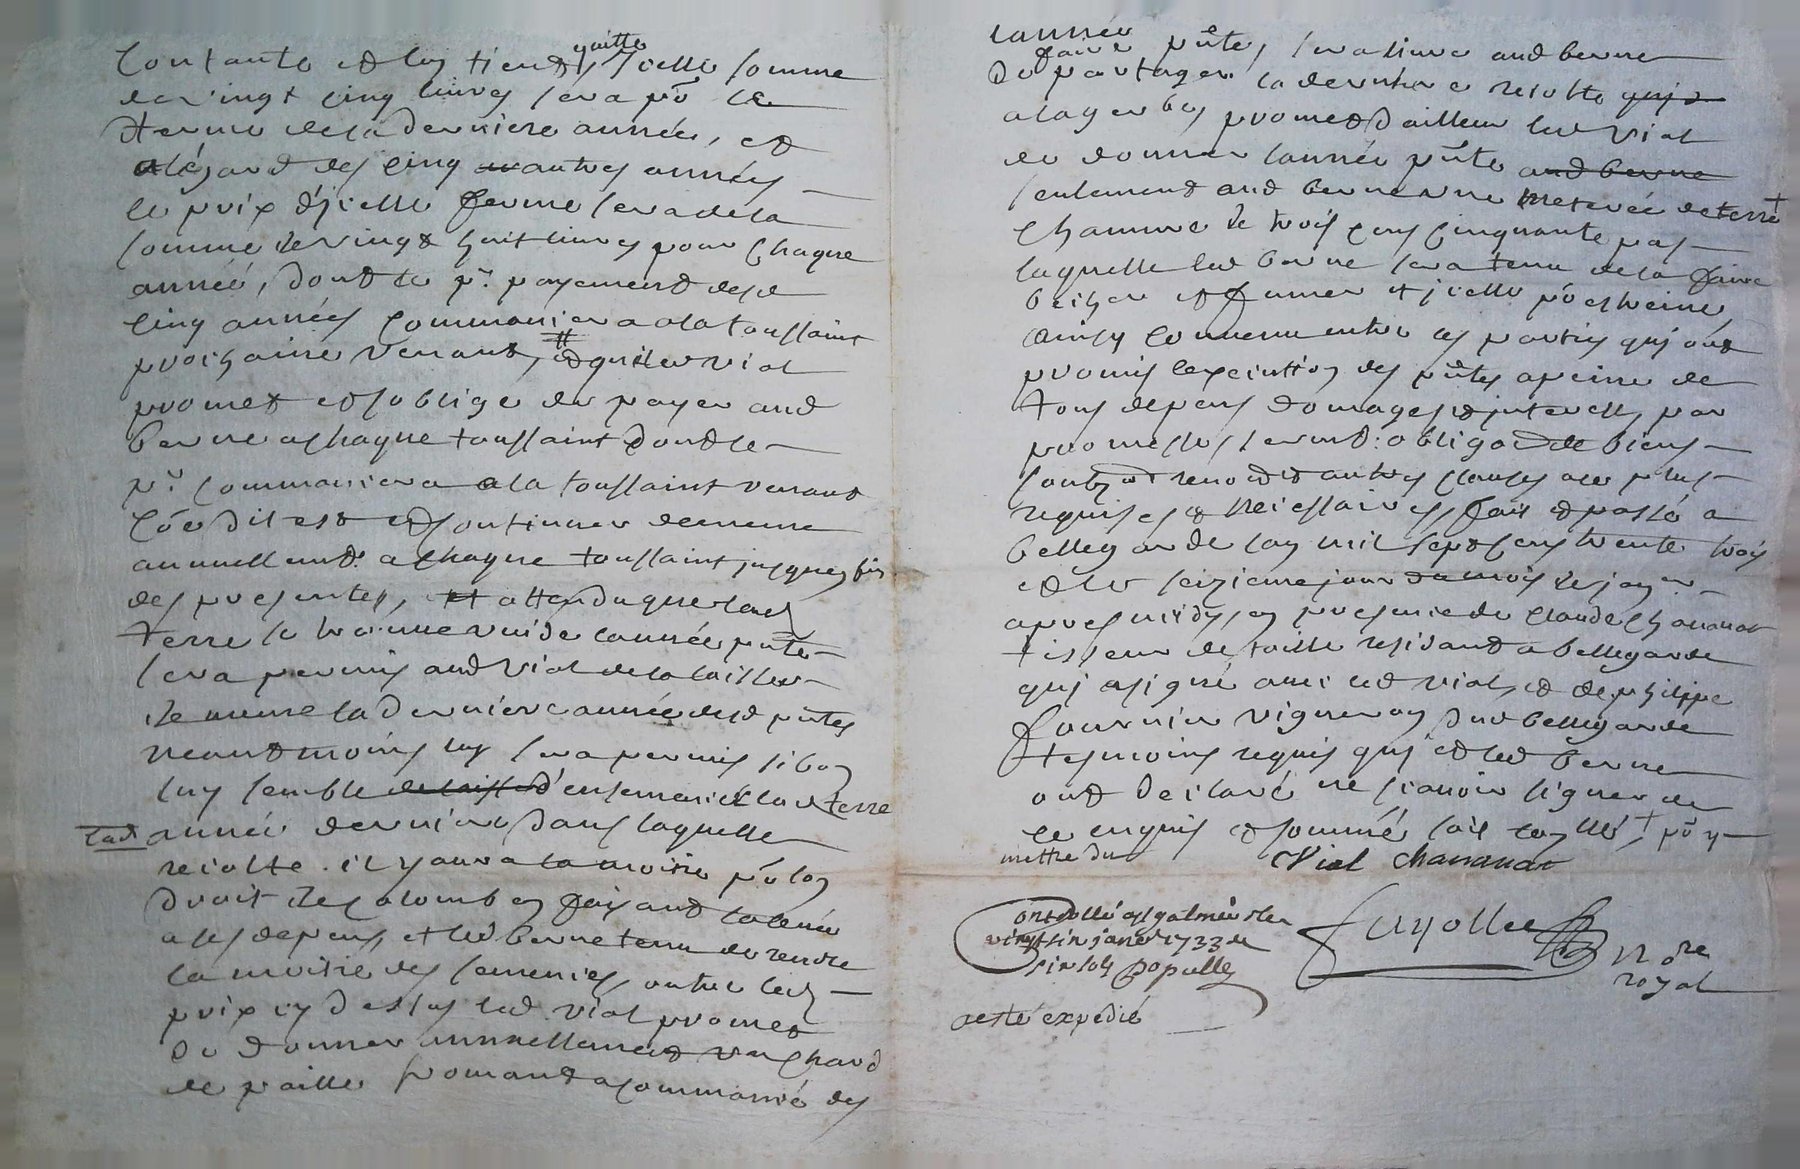 Contante et len tient quitte jcelle somme
de vingt cinq livres sera po.r le
terme de la derniere année, et
a légard des cinq autres années
le prix d'jcelle ferme sera de la
somme de vingt huit livres pour chaque
année, dont le pr. payement desd
cinq années commancera a la toussaint
prochaine venant, et quil led vial
promet et soblige de payer aud
berne a chaque toussaint dont le
pr. commancera a la toussaint venant
co'e dit est et continuer de meme
annuellemt. a chaque toussaint jusques fin
des presentes, et attendu que lad
terre se treuve vuide lannée pnte
sera permis aud vial de la laisser
de meme la derniere année desd pntes
neantmoins luy sera permis si bon
luy semble d'ensemencer lad terre
lad année derniere dans laquelle
recolte il y aura la moitié po.r son
droit de colombage faisant la levée
a ses depens, et led berne tenu de rendre
la moitié des semences, outre led
prix cy dessus led vial promet
de donner annuellement un char
de paille fromant a commancé des
lannée pnte, sera tenu aud berne
de faire partager la derniere recolte
a la gerbe, promet d'ailleur led vial
de donner lannée pnte aud berne
seulement aud berne une meterée de terre
chanvre de trois cens cinquante pas
laquelle led berne sera tenu de la faire
becher et fumer et jcelle po.r chenevé
Ainsy convenu entre les parties qui ont
promis lexecution des pntes a peine de
tous depens domages et jnterests par
promesses, sermt. obligaon de biens
soubz on renon et autres clauses a ce plus
requises et necessaires, fait et passé a
bellegarde lan mil sept cens trente trois
et le seizieme jour du mois de janer
apres midy, en presence de claude chananat
tisseur de toille residant a bellegarde
qui a signé avec led vial, et de philippe
fournier vigneron dud bellegarde
tesmoins requis qui et led berne
ont declaré ne scavoir signer de
ce enquis et sommé soit con'llé, † po.r y
mettre du
Vial chananat
Controllé a st galmier le
vingt six janer 1733 de
six sols Populle
Fayolle
Nore
royal
a esté expedié